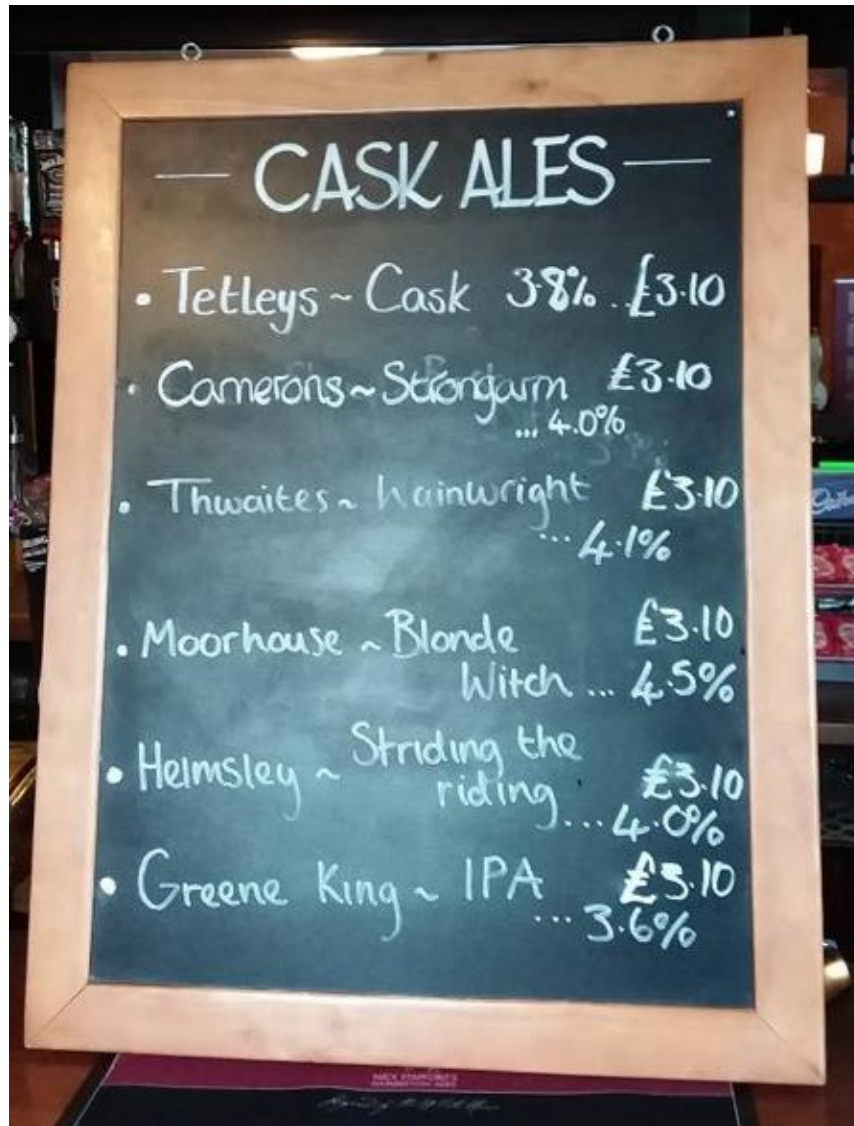 CASK ALES
• Tetleys ~ Cask 3.8% .. £3.10
• Camerons ~ Strongarm £3.10
... 4.0%
• Thwaites ~ Wainwright £3.10
... 4.1%
• Moorhouse ~ Blonde £3.10
Witch ... 4.5%
• Helmsley ~ Striding the
riding £3.10
... 4.0%
• Greene King ~ IPA £3.10
... 3.6%